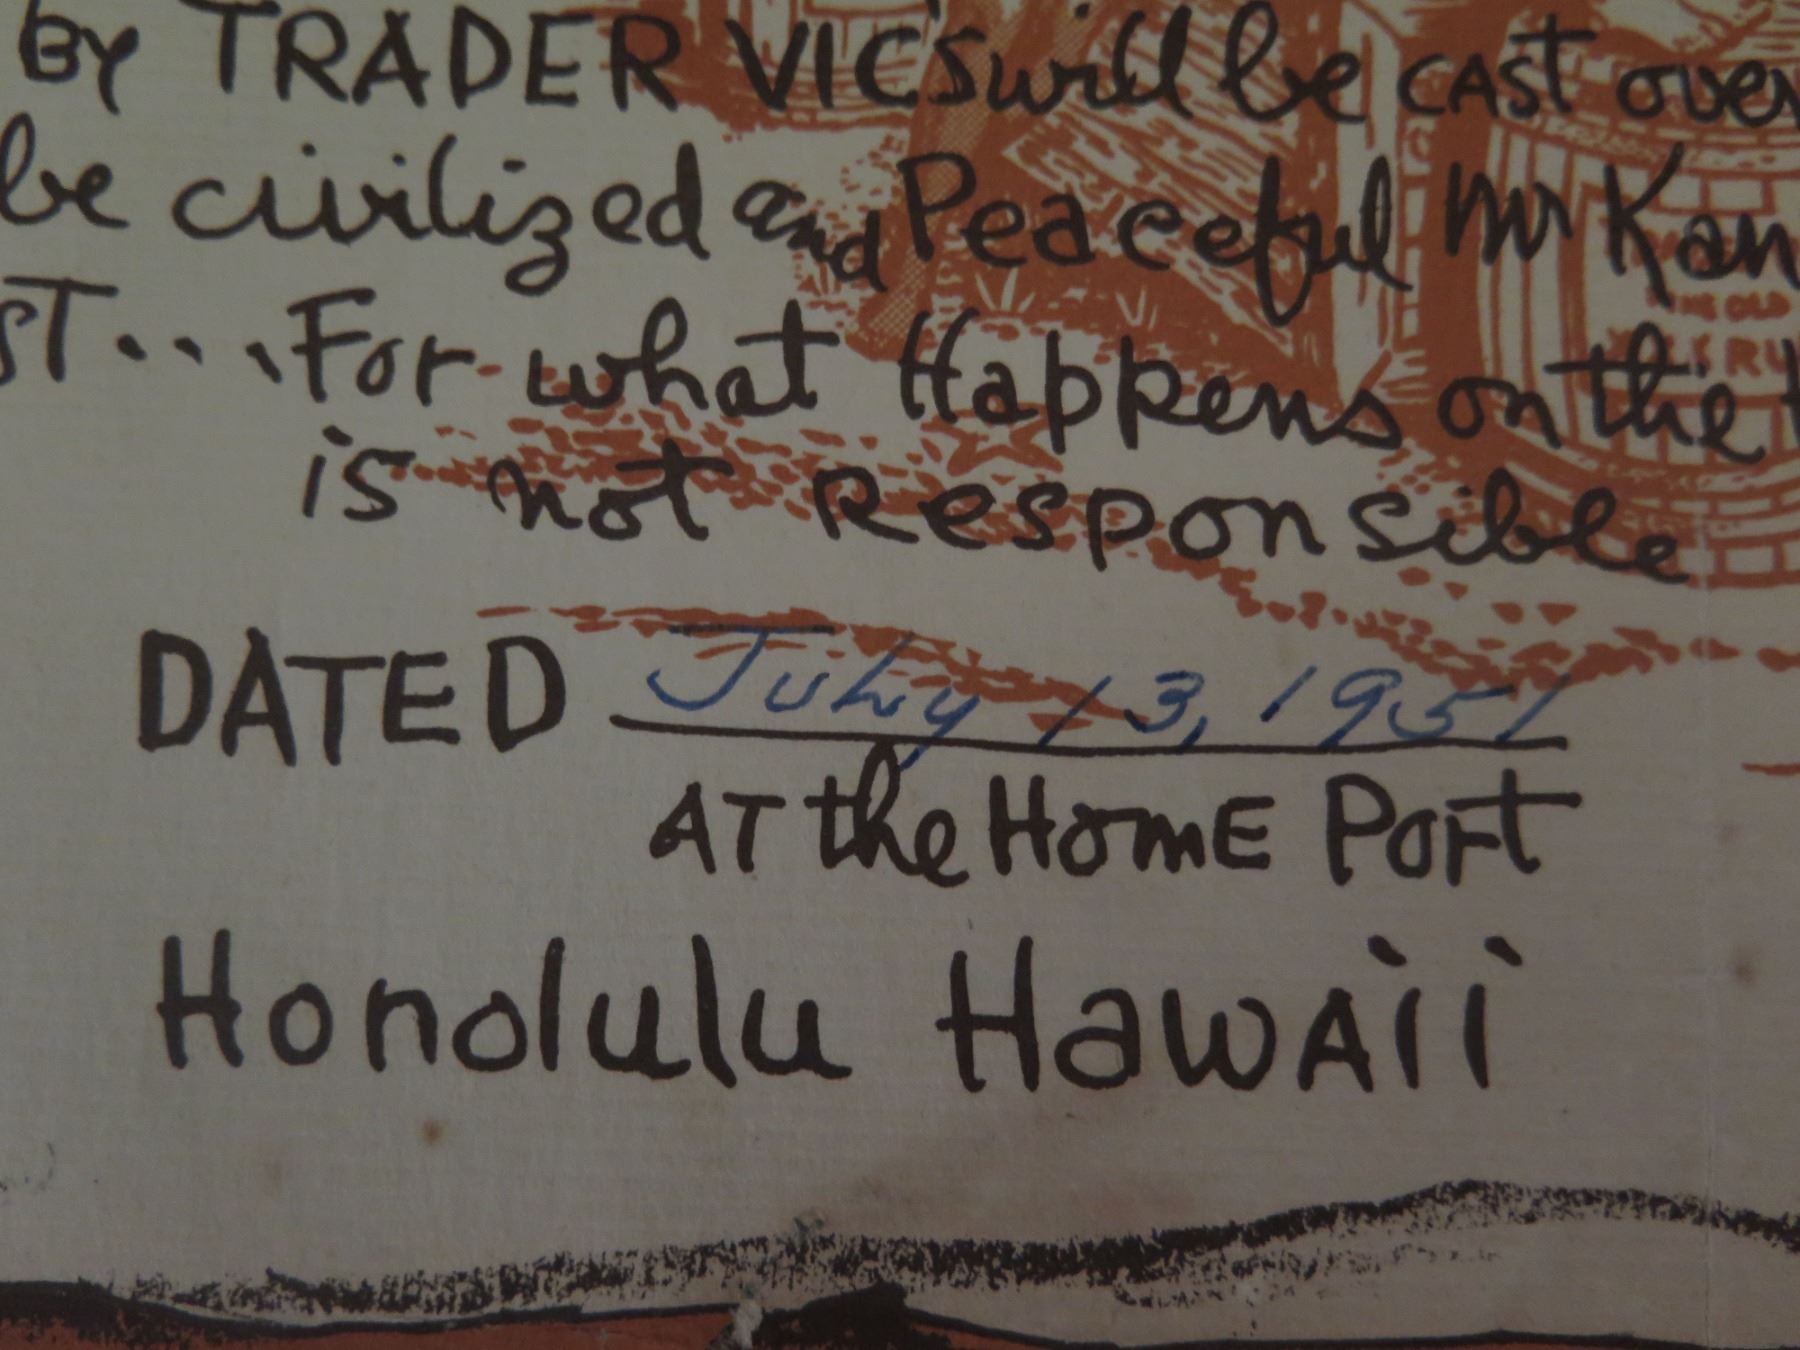 By TRADER VIC'S will be CAST over
be civilized and Peaceful Mr Kan
ST... For what Happens on the
is not Responsible
THE OLD
RU
DATED July 13, 1951
AT the HOME PORT
Honolulu Hawaii